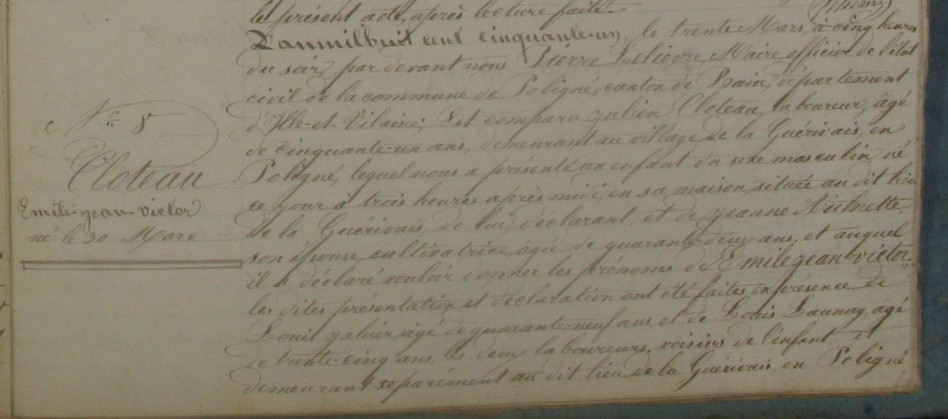 le présent acte, après lecture faite.
L'an mil huit cent cinquante-un, le trente Mars, à cinq heures
du soir, par devant nous Pierre Lelievre, Maire, officier de l'état
civil de la commune de Poligné, canton de Bain, département
d'Ille-et-Vilaine, Est comparu Julien Cloteau, laboureur, âgé
de cinquante-un ans, demeurant au village de la Guérivais, en
Poligné, lequel nous a présenté un enfant du sexe masculin, né
ce jour à trois heures après midi, en sa maison, située au dit lieu
de la Guérivais, de lui, déclarant, et de Jeanne
son épouse, cultivatrice, âgée de quarante-deux ans, et auquel
il a déclaré vouloir donner les prénoms de Emile jean victor
les dites présentation et déclaration ont été faites en présence de
Louis âgé de quarante-neuf ans et de Louis Launay, âgé
de trente-cinq ans, les deux laboureurs, voisins de l'enfant
demeurant séparément au dit lieu de la Guérivais, en Poligné
No. 8
Cloteau
Emile-jean-victor
né le 30 Mars